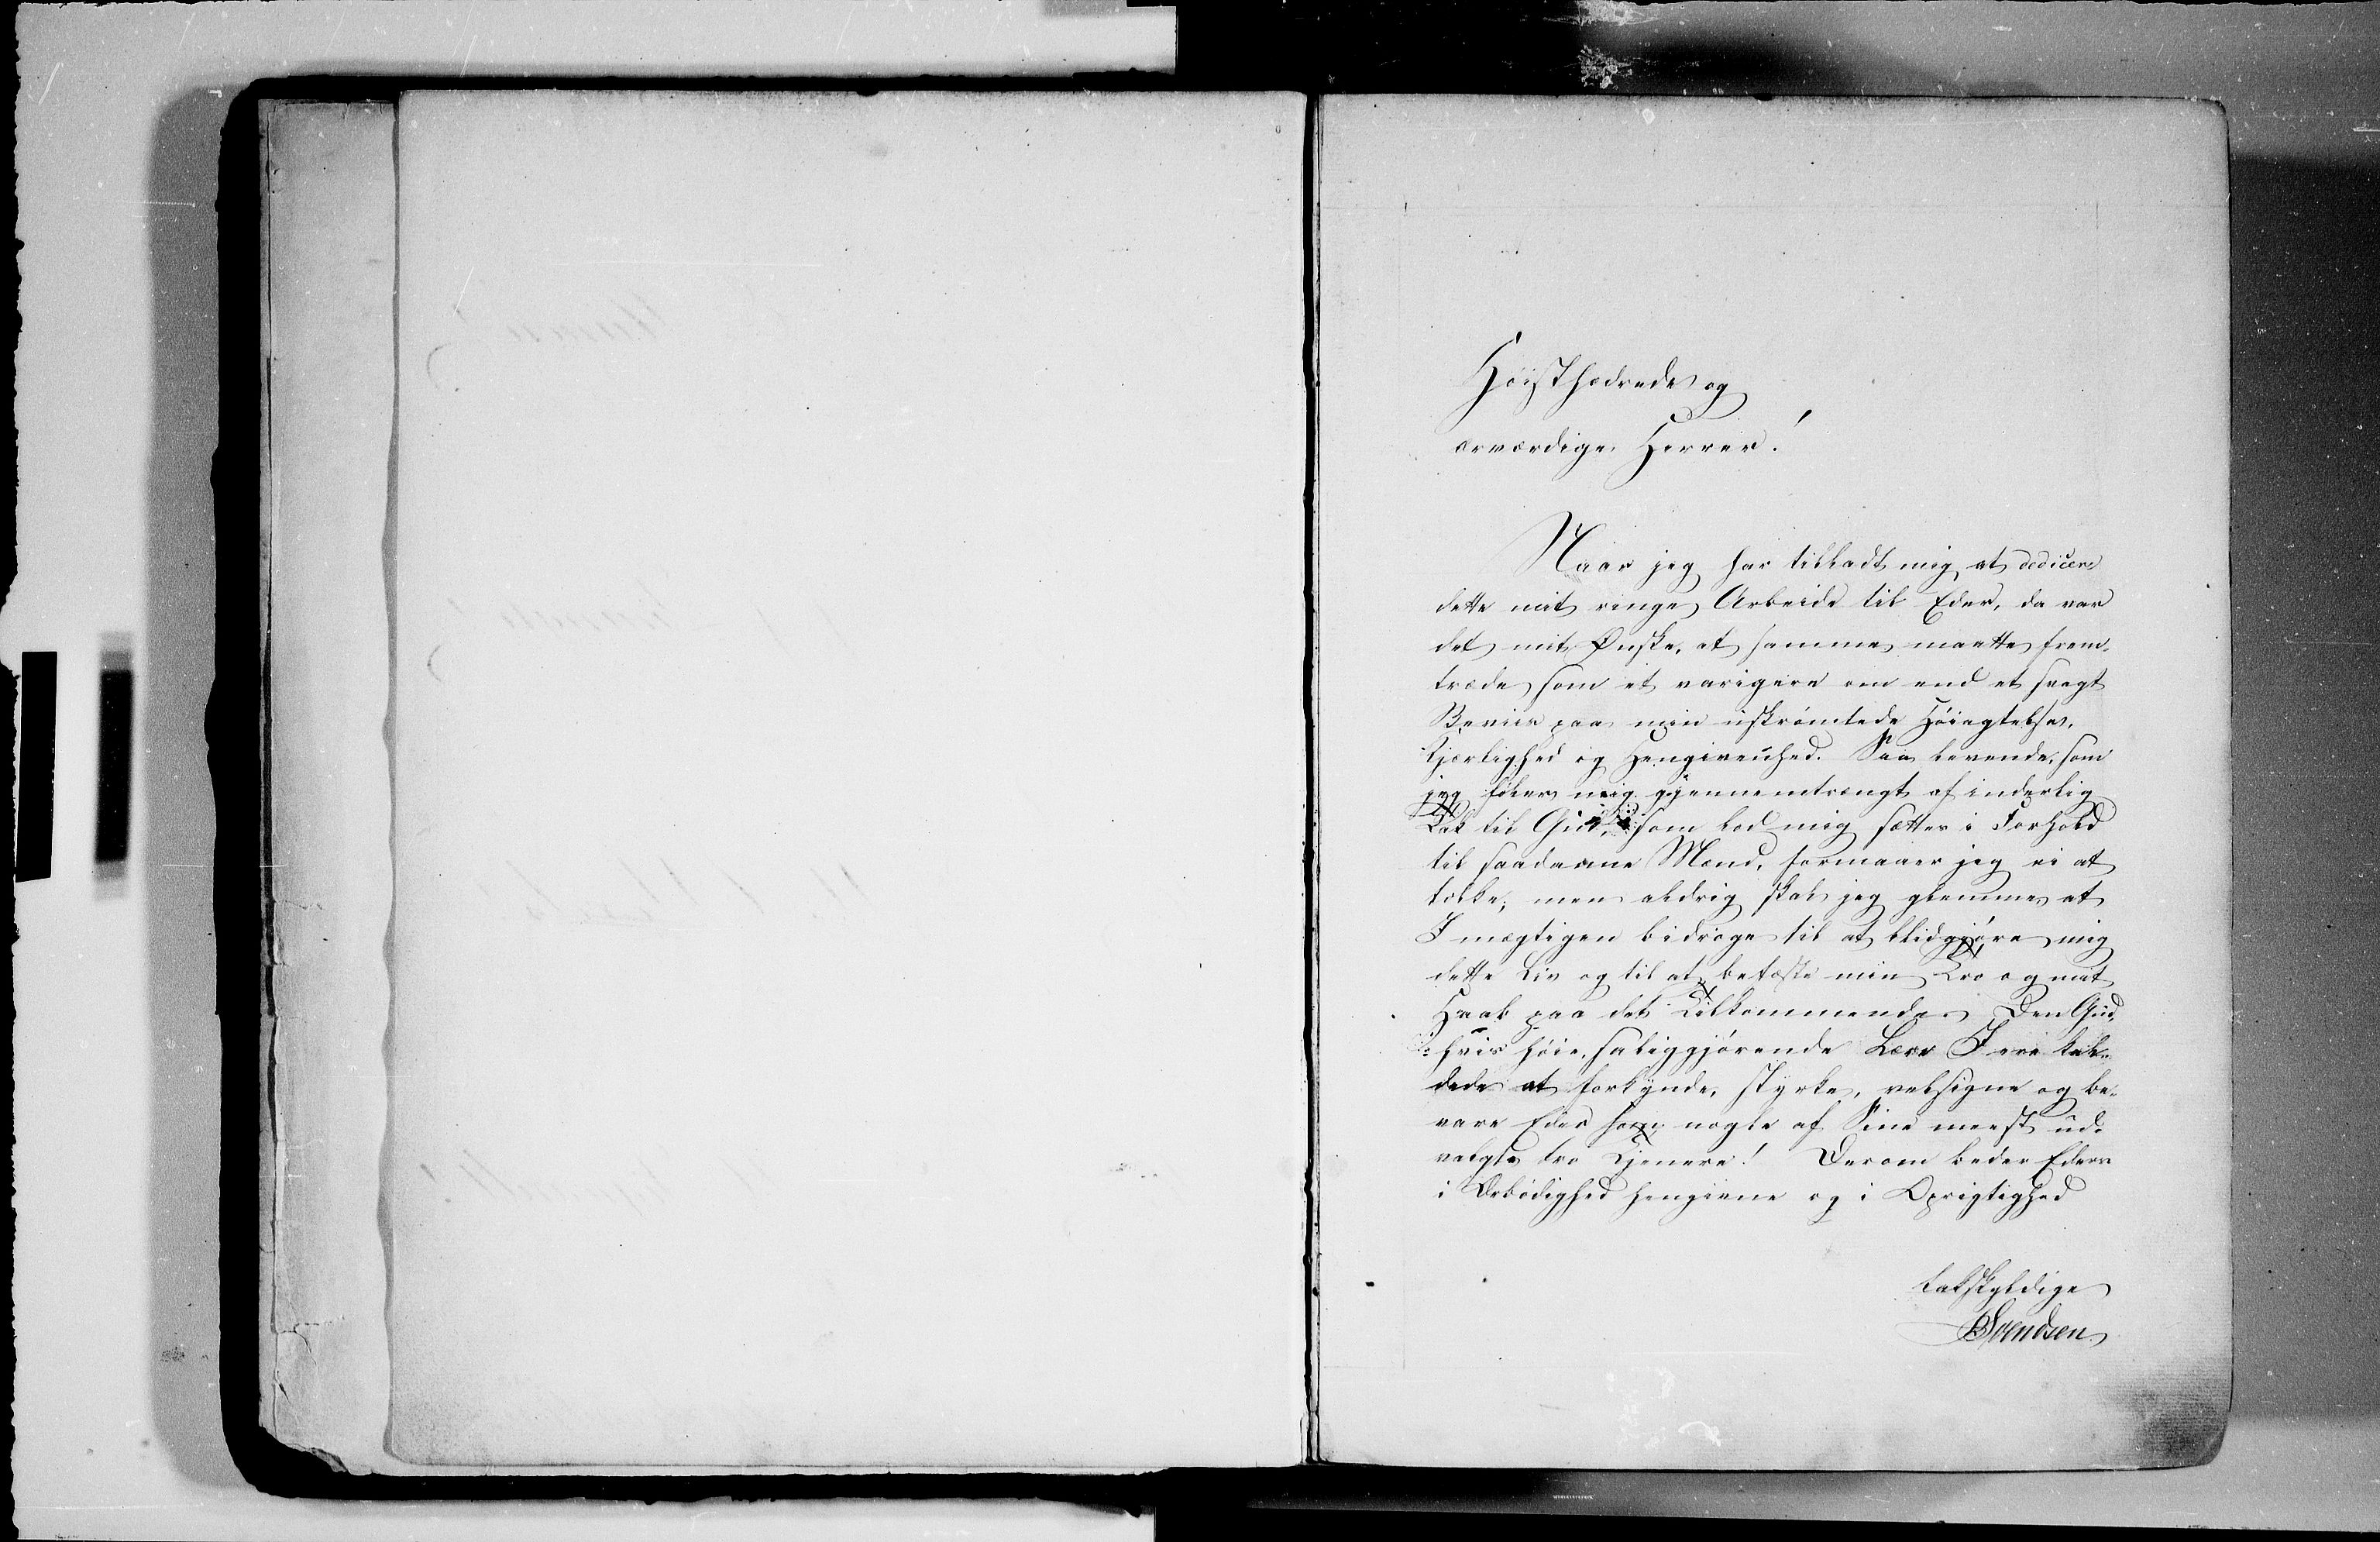 Høisthædrede og
ærværdige Herrer!
Naar jeg har tilladt mig at dedicere
dette mit ringe Arbeide til Eder, da var
det mit Ønske, at samme maatte frem-
træde som et varigere om end et svagt
Beviis paa min uskrømtede Høiagtelse,
Kjærlighed og Hengivenhed. Saa levende, som
jeg føler mig gjennemtrængt af inderlig
Tak til Gud, som lod mig sættes i Forhold
til saadanne Mænd, formaaer jeg ei at
tolke; men aldrig skal jeg glemme at
I mægtigen bidroge til at blidgjøre mig
dette Liv og til at befæste min Tro og mit
Haab paa det Tilkommende. Den Gud,
hvis høie, saliggjørende Lære I ere kal-
dede at forkynde, styrke, velsigne og be-
vare Eder som nogle af Sine meest ud-
valgte tro Tjenere! Derom beder Eders
i Ærbødighed hengivne og i Oprigtighed
takskyldige
Svendsen